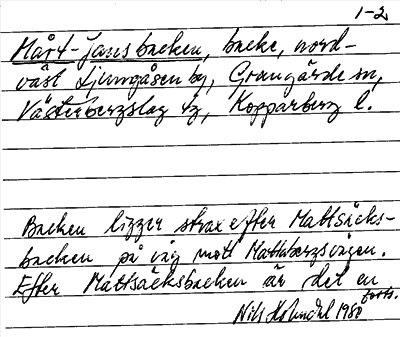 1-2
Mårt-Jansbacken, backe, nord-
väst Ljungåsen by, Grangärde sn,
Västerbergslag tg, Kopparberg l.
Backen ligger strax efter Mattsäcks-
backen på väg mot Mattsbergsvägen.
Efter Mattsäcksbacken är det en
forts.
Nils 1980